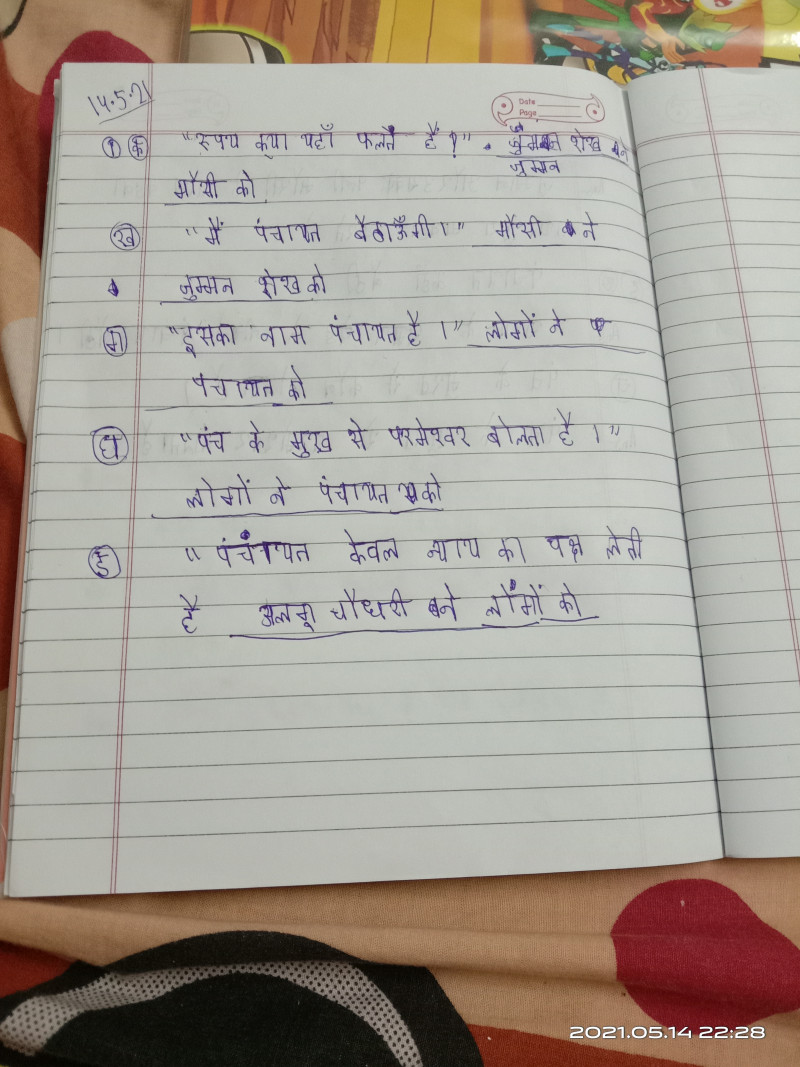 14.5.21
Date
Page
① क "रुपय क्या यहाँ फलते हैं ?" जुम्मन शेख ने
जुम्मन
मौसी को
ख "मैं पंचायत बैठाऊँगी।" मौसी ने
जुम्मन शेख को
ग "इसका नाम पंचायत है।" लोगों ने
पंचायत को
घ "पंच के मुख से परमेश्वर बोलता है।"
लोगों ने पंचायत को
ङ "पंचायत केवल न्याय का पक्ष लेती
है अलगू चौधरी ने लोगों को
2021.05.14 22:28